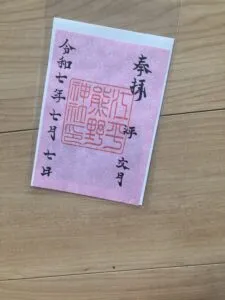 奉拝
文月
江平
熊野
神社印
令和七年七月七日